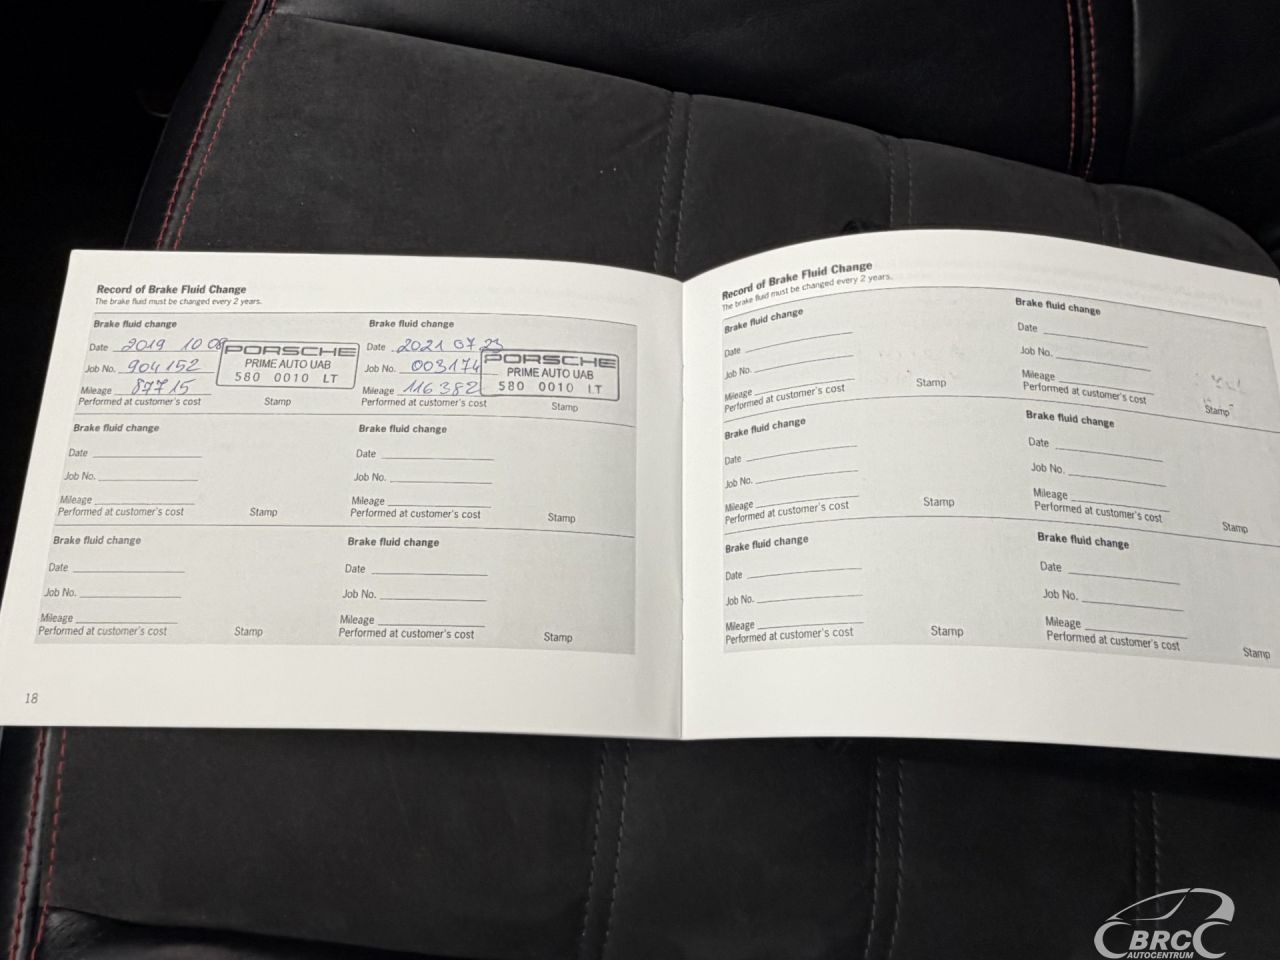 Record of Brake Fluid Change
The brake fluid must be changed every 2 years.
Brake fluid change
Date 2019 10 08
Job No. 904152
Mileage 87715
Performed at customer's cost
Stamp
PORSCHE
PRIME AUTO UAB
580 0010 LT
Brake fluid change
Date 2021 07 23
Job No. 003174
Mileage 116 382
Performed at customer's cost
Stamp
PORSCHE
PRIME AUTO UAB
580 0010 LT
Brake fluid change
Date
Job No.
Mileage
Performed at customer's cost
Stamp
Brake fluid change
Date
Job No.
Mileage
Performed at customer's cost
Stamp
Brake fluid change
Date
Job No.
Mileage
Performed at customer's cost
Stamp
Brake fluid change
Date
Job No.
Mileage
Performed at customer's cost
Stamp
18
Record of Brake Fluid Change
The brake fluid must be changed every 2 years.
Brake fluid change
Date
Job No.
Mileage
Performed at customer's cost
Stamp
Brake fluid change
Date
Job No.
Mileage
Performed at customer's cost
Stamp
Brake fluid change
Date
Job No.
Mileage
Performed at customer's cost
Stamp
Brake fluid change
Date
Job No.
Mileage
Performed at customer's cost
Stamp
Brake fluid change
Date
Job No.
Mileage
Performed at customer's cost
Stamp
Brake fluid change
Date
Job No.
Mileage
Performed at customer's cost
Stamp
BRC
AUTOCENTRUM